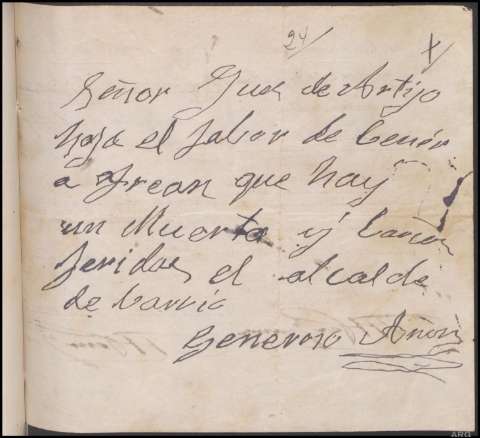 24/ X/
Señor Jues de Artijo
haja el fabor de benir
a Arean que hay
un Muerto y barios
feridos el alcalde
de barrio
Generoso Añon
ARG